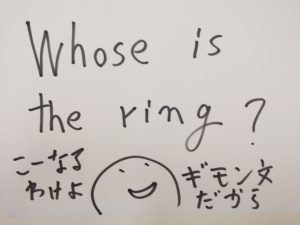 Whose is
the ring?
こーなる
わけよ
ギモン文
だから